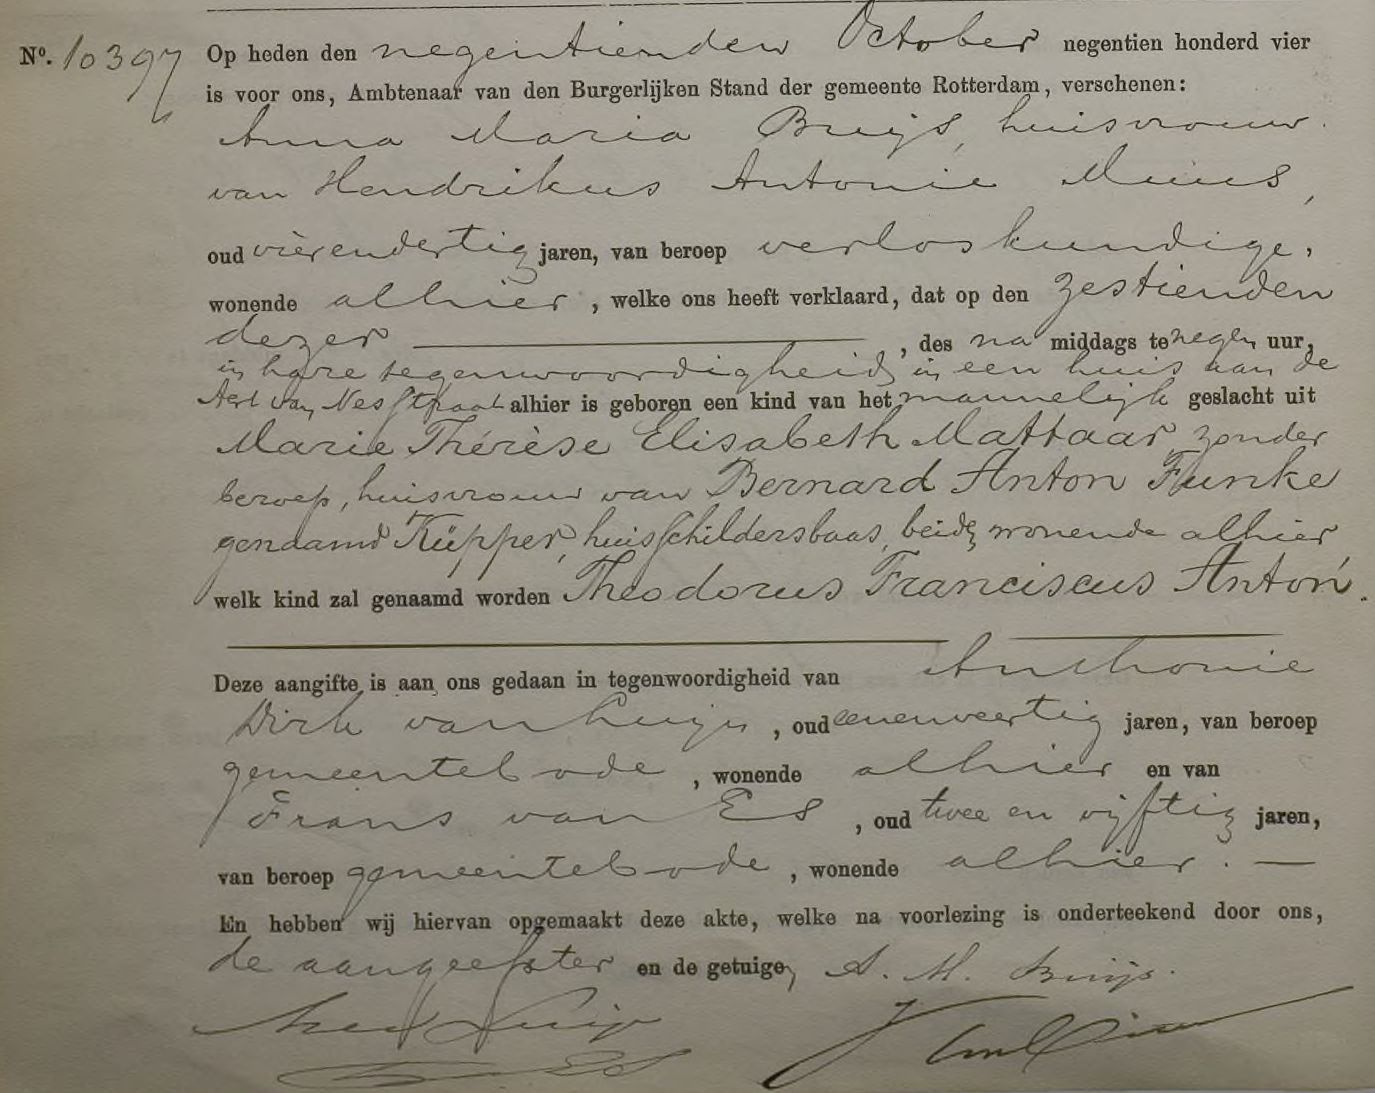 No. 10397 Op heden den negentienden October negentien honderd vier
is voor ons, Ambtenaar van den Burgerlijken Stand der gemeente Rotterdam, verschenen:
Anna Maria Buijs, huisvrouw
van Hendrikus Antonie Muis,
oud vierendertig jaren, van beroep verloskundige,
wonende alhier, welke ons heeft verklaard, dat op den zestienden
dezer, des na middags te negen uur,
in hare tegenwoordigheid, in een huis aan de
Aert van Nesstraat alhier is geboren een kind van het mannelijk geslacht uit
Marie Thérèse Elisabeth Mattaar, zonder
beroep, huisvrouw van Bernard Anton Funke
genaamd Küpper, huisschildersbaas, beide wonende alhier,
welk kind zal genaamd worden Theodorus Franciscus Anton.
Deze aangifte is aan ons gedaan in tegenwoordigheid van Anthonie
Dirk van, oud eenenveertig jaren, van beroep
gemeentebode, wonende alhier en van
Frans van Es, oud twee en vijftig jaren,
van beroep gemeentebode, wonende alhier.
En hebben wij hiervan opgemaakt deze akte, welke na voorlezing is onderteekend door ons,
de aangeefster en de getuigen, A. M. Buijs.